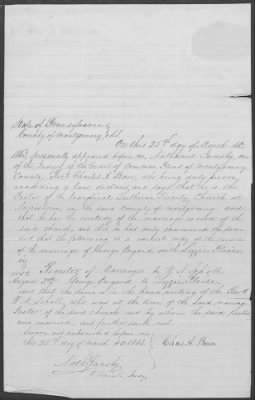 State of Pennsylvania
County of Montgomery, ss.
On this 25th day of March AD
1863 personally appeared before me, Nathaniel Jacoby, one
of the of the Court of Common Pleas of Montgomery
County, Rev. Charles A. Baer, who being duly sworn
according to law declares and says that he is the
Pastor of the Evangelical Lutheran Trinity Church at
Norristown in said County of Montgomery, and
that he has the custody of the marriage records of the
said church, and that he has duly examined the same
and that the following is a correct copy of the record
of the marriage of George Bugard with Lizzie
1862 Register of Marriages by Scholl
August George Bugard to Lizzie
and that the same is in the hand writing of the Rev.
W. A. Scholl, who was at the time of the said marriage
Pastor of the said church and by whom the said parties
were married, and further saith not.
Sworn and subscribed before me
this 25th day of March AD 1863
Chas. A. Baer
Nath. Jacoby